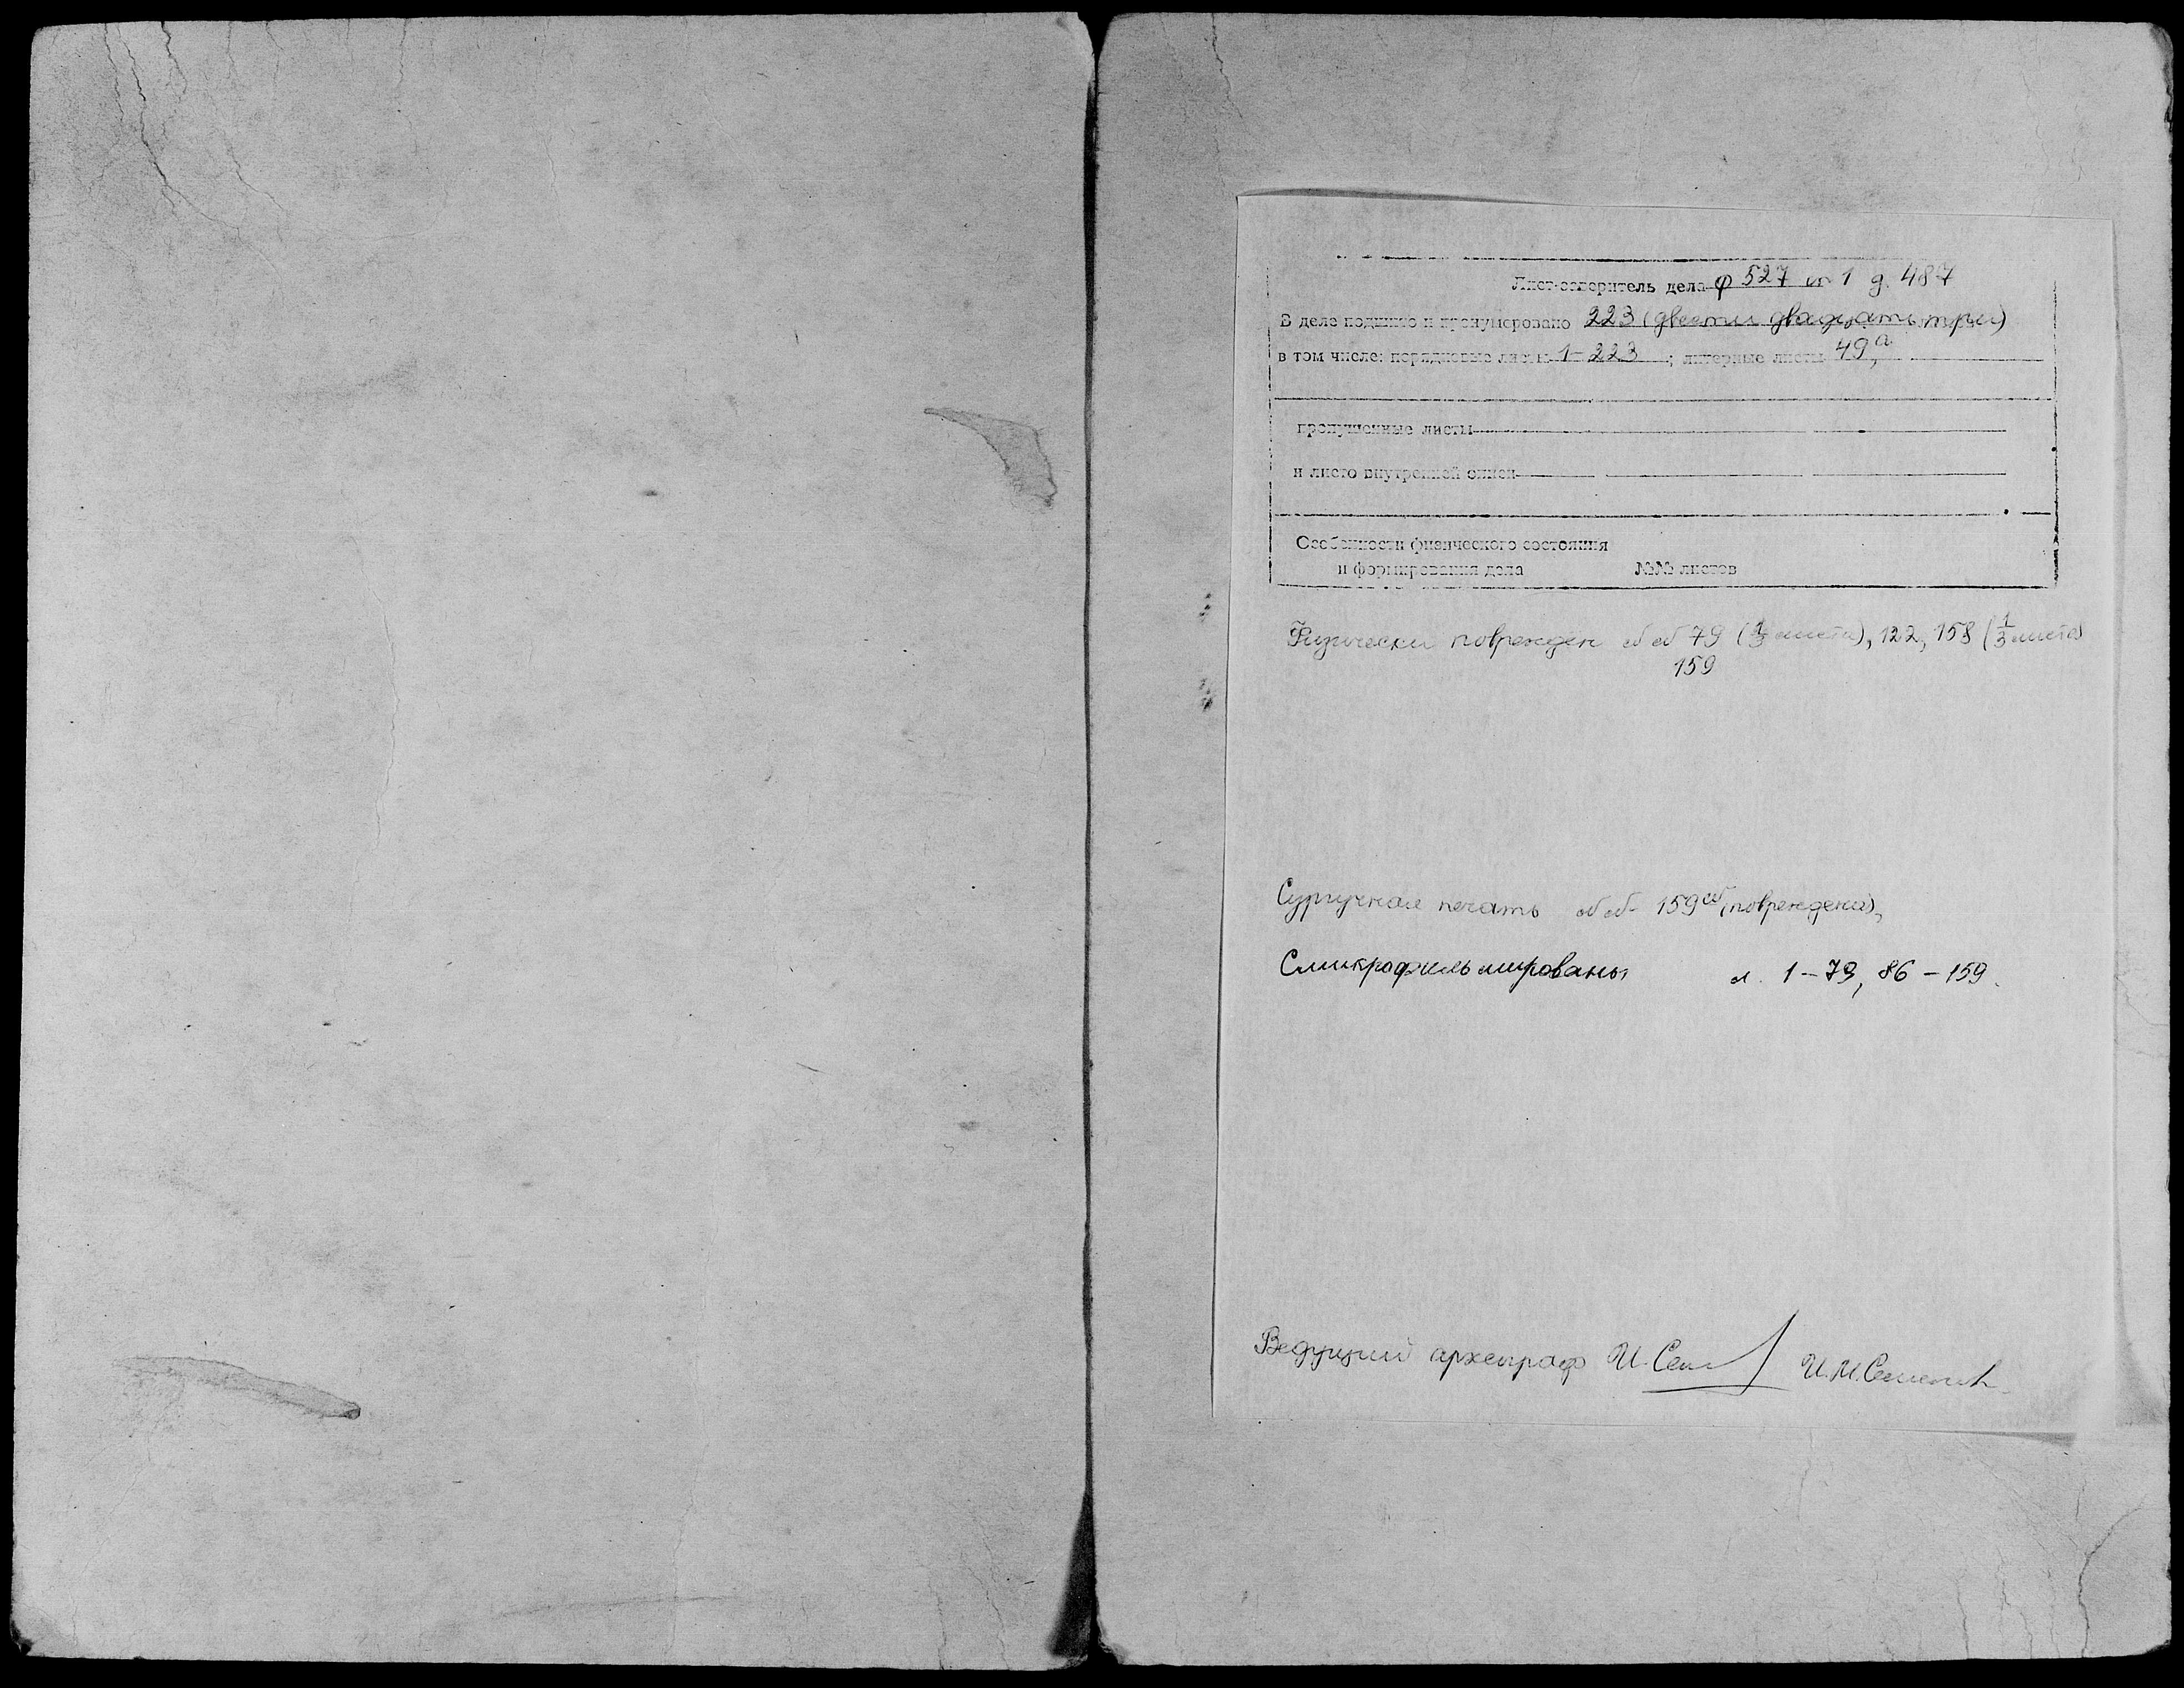 Лист-заверитель дела ф 527 оп 1 д. 487
В деле подшито и пронумеровано 223 (двести двадцать три)
в том числе: порядковые листы 1-223; литерные листы 49а,
пропущенные листы
и листо внутренней описи
Особенности физического состояния
и формирования дела №№ листов
Физически поврежден лл 79 (1/3 листа), 122, 158 (1/3 листа)
159
Сургучная печать лл. 159об (повреждена),
Смикрофильмированы л. 1-79, 86-159.
Ведущий археограф И. Сем И.М.